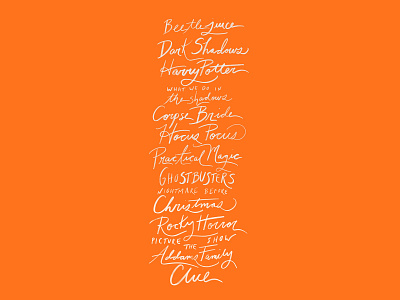 Beetlejuice
Dark Shadows
Harry Potter
WHAT WE DO IN
the shadows
Corpse Bride
Hocus Pocus
Practical Magic
GHOSTBUSTERS
NIGHTMARE BEFORE
Christmas
Rocky Horror
PICTURE SHOW
THE
Addams Family
Clue